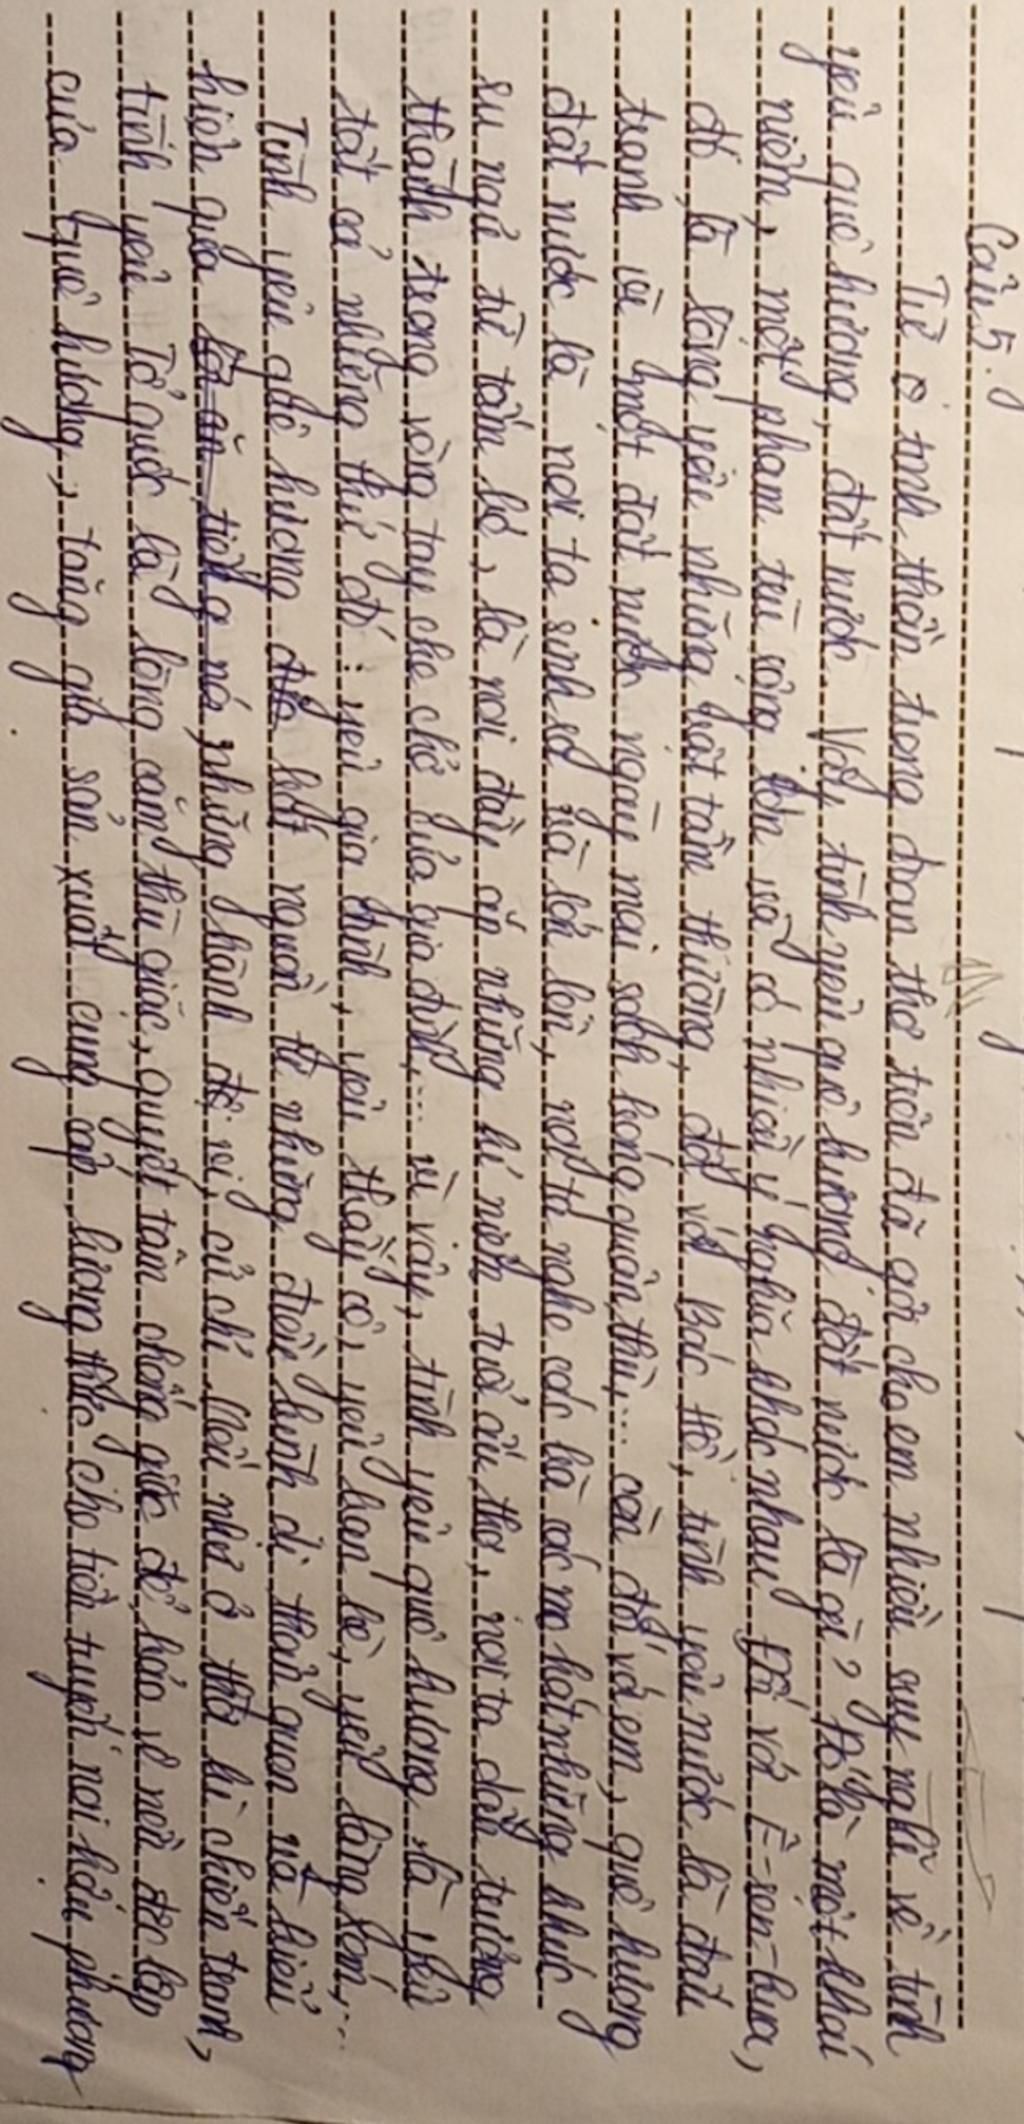 Câu 5.
Từ tinh thần trong đoạn thơ trên đã gợi cho em nhiều suy nghĩ về tình
yêu quê hương, đất nước. Vậy, tình yêu quê hương đất nước là gì? Đó là một khái
niệm, một phạm trù rộng lớn và có nhiều ý nghĩa khác nhau. Đối với Ê-ren-bua,
đó là lòng yêu những vật tầm thường, đối với Bác Hồ, tình yêu nước là đấu
tranh vì một đất nước ngày mai sạch bóng quân thù,... còn đối với em, quê hương
đất nước là nơi ta sinh ra và lớn lên, nơi ta nghe các bà các mẹ hát những khúc
ru ngủ từ tấm bé, là nơi đầy ắp những kí niệm tuổi ấu thơ, nơi ta dần trưởng
thành trong vòng tay che chở của gia đình,... vì vậy, tình yêu quê hương là yêu
tất cả những thứ đó: yêu gia đình, yêu thầy cô, yêu bạn bè, yêu làng xóm,...
Tình yêu quê hương bắt nguồn từ những điều bình dị thân quen và biểu
hiện qua những hành động, cử chỉ. Nếu như ở thời kì chiến tranh,
tình yêu Tổ quốc là lòng căm thù giặc, quyết tâm chống giặc để bảo vệ nền độc lập
của quê hương, tăng gia sản xuất cung cấp lương thực cho tiền tuyến nơi hậu phương